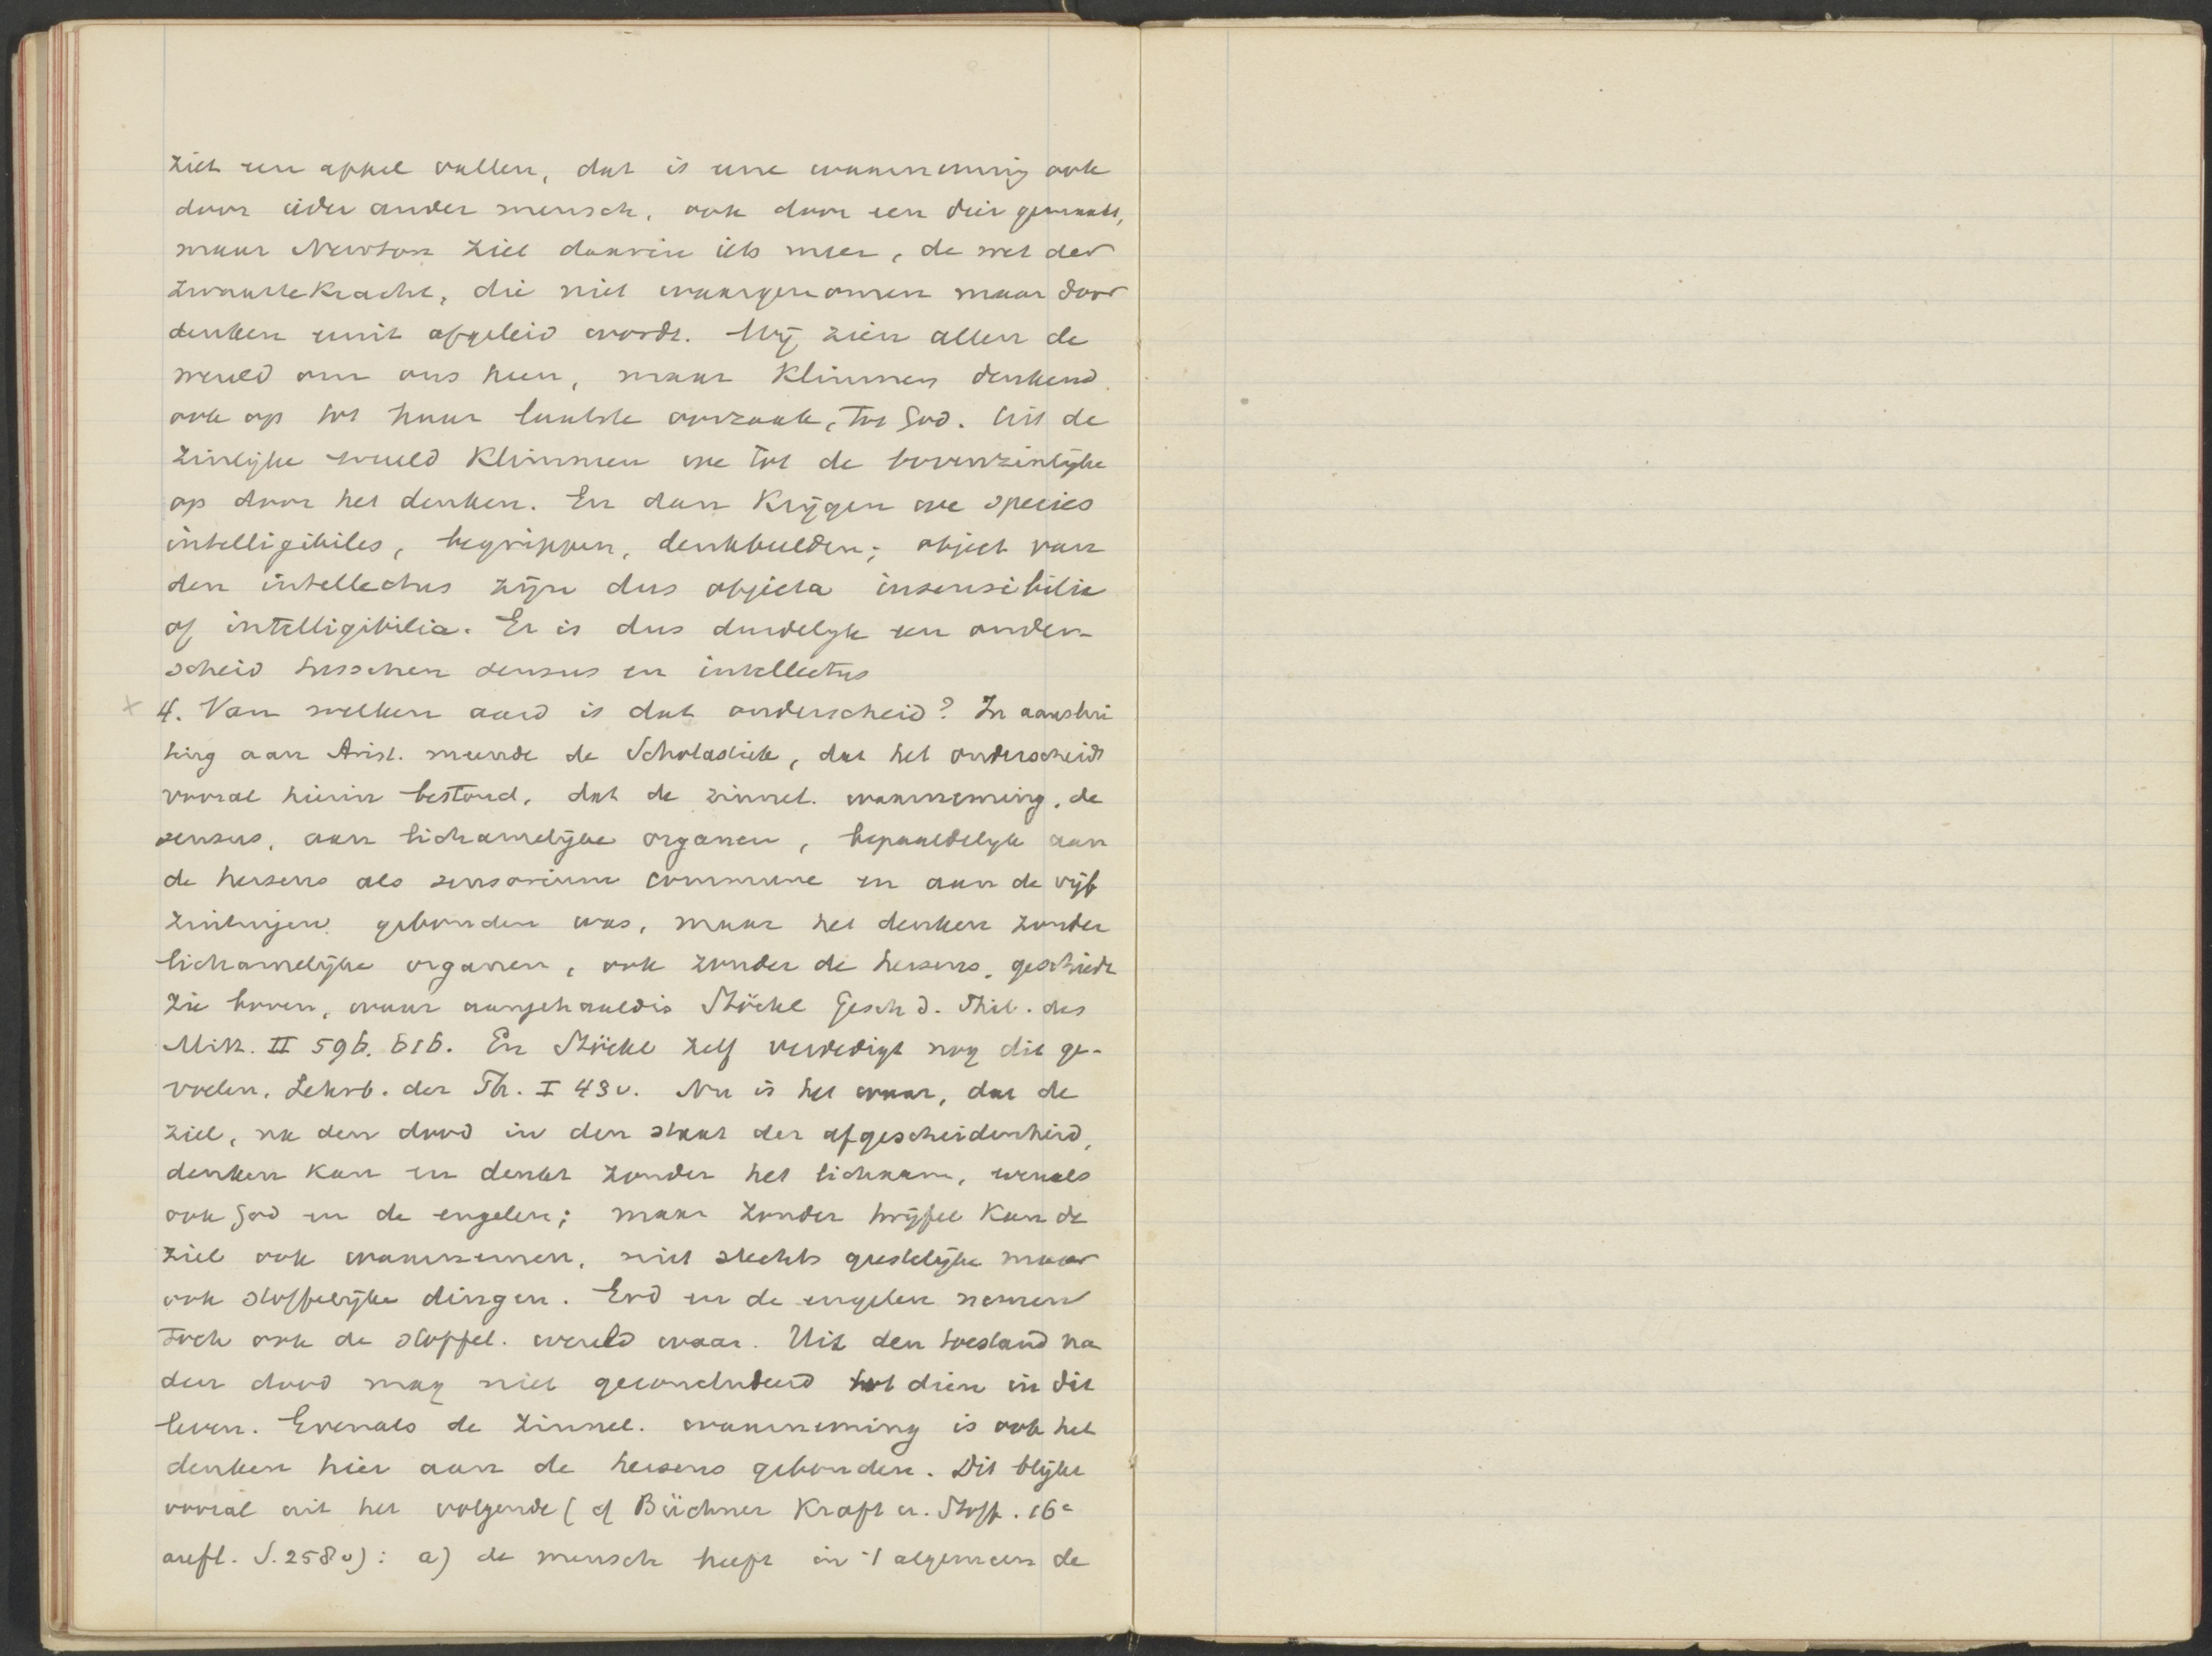 ziet een appel vallen, dat is eene waarneming ook
door ieder ander mensch, ook door een dier gemaakt,
maar Newton ziet daarin iets meer, de wet der
zwaartekracht, die niet waargenomen maar door
denken eruit afgeleid wordt. Wij zien allen de
wereld om ons heen, maar klimmen denkend
ook op tot haar laatste oorzaak, tot God. Uit de
zinlijke wereld klimmen we tot de bovenzinlijke
op door het denken. En dan krijgen we species
intelligibiles, begrippen, denkbeelden; object van
den intellectus zijn dus objecta insensibilia
of intelligibilia. Er is dus duidelijk een onder-
scheid tusschen sensus en intellectus
4. Van welken aard is dat onderscheid? In aanslui
ting aan Arist. meende de Scholastiek, dat het onderscheid
vooral hierin bestond, dat de zinnel. waarneming, de
sensus, aan lichamelijke organen, bepaaldelijk aan
de hersens als sensorium commune en aan de vijf
zintuigen gebonden was, maar het denken zonder
lichamelijke organen, ook zonder de hersens, geschiedt
zie boven, waar aangehaald is Stöckl Gesch d. Phil. des
Mitt. II 596. 616. En Stöckl zelf verdedigt nog dit ge-
voelen. Lehrb. der Ph. I 43v. Nu is het waar, dat de
ziel, na den dood in den staat der afgescheidenheid,
denken kan en denkt zonder het lichaam, evenals
ook God en de engelen; maar zonder twijfel kan de
ziel ook waarnemen, niet slechts geestelijke maar
ook stoffelijke dingen. God en de engelen nemen
toch ook de stoffel. wereld waar. Uit den toestand na
den dood mag niet geconcludeerd tot dien in dit
leven. Evenals de zinnel. waarneming is ook het
denken hier aan de hersens gebonden. Dit blijkt
vooral uit het volgende (cf Büchner Kraft u. Stoff. 16e
aufl. S. 258v): a) de mensch heeft in 't algemeen de